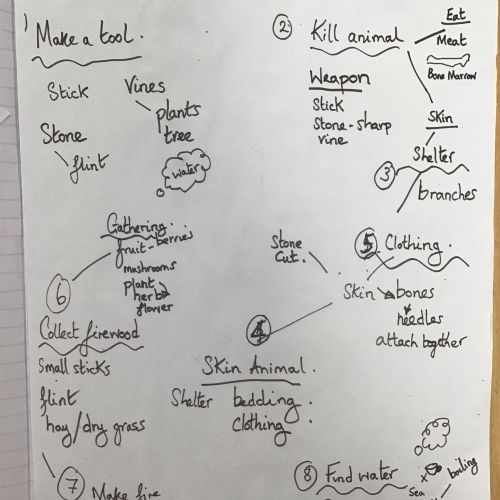 1)
Make a tool.
Stick
Vines
plants
tree
Stone
flint
water
2
Kill animal
Eat
Meat
Bone Marrow
Weapon
Stick
Stone - sharp
vine
Skin
Shelter
3
branches
5
Clothing.
Stone
Cut.
Skin
bones
needles
attach together
4
Skin Animal.
Shelter bedding.
clothing
Gathering.
fruit - berries
mushrooms
plant
herb
flower
6
Collect firewood
Small sticks
flint
hay/dry grass
7
Make fire
8
Find water
Sea
boiling